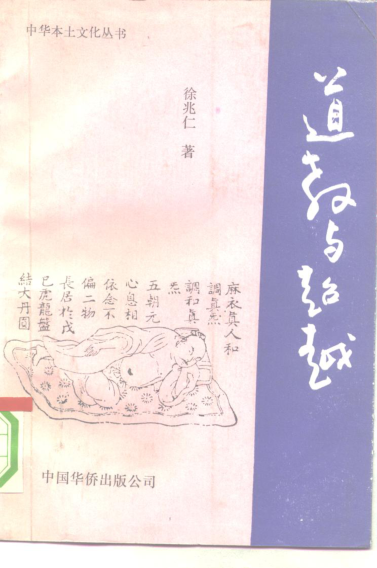 中华本土文化丛书
徐兆仁 著
道教与超越
麻衣真人和
調真炁
調和真
炁
五朝元
心息相
依念不
偏二物
長居於戊
己虎龍盤
結大丹圓
中国华侨出版公司